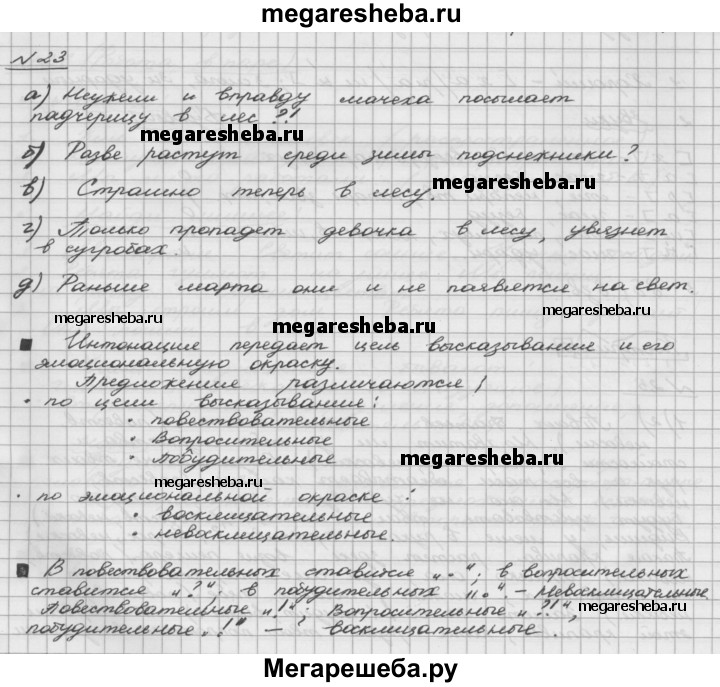 megaresheba.ru
№23
а) Неужели и вправду мачеха посылает
падчерицу в лес ?!
megaresheba.ru
megaresheba.ru
б) Разве растут среди зимы подснежники?
в) Страшно теперь в лесу.
megaresheba.ru
г) Только пропадет девочка в лесу, увязнет
в сугробах.
д) Раньше марта они и не появятся на свет.
megaresheba.ru
megaresheba.ru
megaresheba.ru
Интонация передает цель высказывания и его
эмоциональную окраску.
Предложения различаются /
• по цели высказывания:
• повествовательные
• Вопросительные
• Побудительные
megaresheba.ru
megaresheba.ru
• по эмоциональной окраске :
• восклицательные
• невосклицательные.
В повествовательных ставится „ . “; в вопросительных
ставится „?“; в побудительных „ . “. – Невосклицательные.
Повествовательные „!“; Вопросительные „?!“,
megaresheba.ru
побудительные „!“ – восклицательные.
Мегарешеба.ру